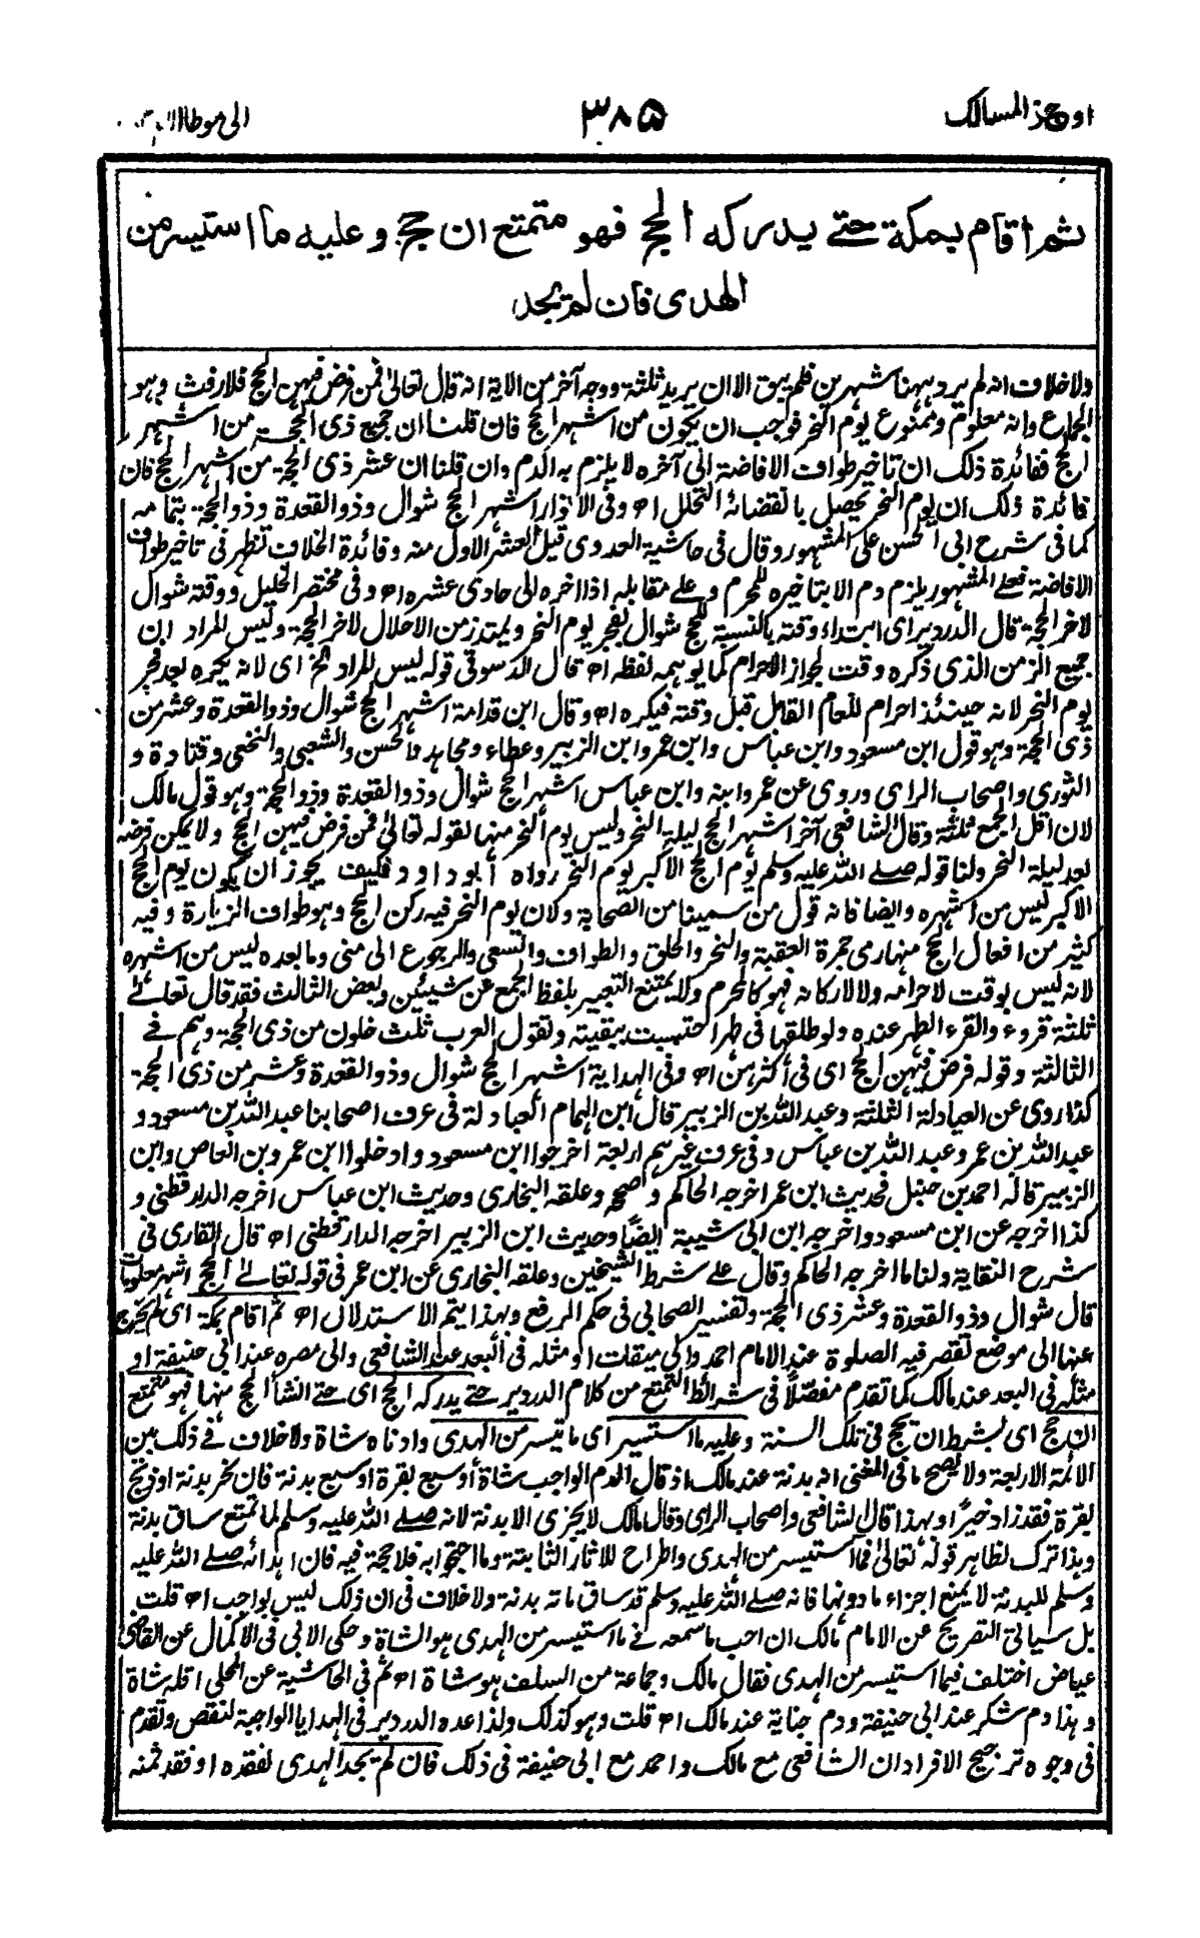 اوجز المسالك
٣٨٥
الى موطا
ثم اقام بمكة حتے يدركه الحج فهو متمتع ان حج وعليه ما استيسر من
الهدى فان لم يجد
ولا خلاف انه لم يرد ههنا شهرين فلم يبق الا ان يريد ثلثة ووجه آخر من الاية انه قال تعالىٰ فمن فرض فيهن الحج فلا رفث وهو
الجماع وانه معلوم وممنوع يوم النحر فوجب ان يكون من اشهر الحج فان قلنا ان جميع ذى الحجة من اشهر
الحج ففائدة ذلك ان تاخير طواف الافاضة الى آخره لا يلزم به الدم وان قلنا ان عشر ذى الحجة من اشهر الحج فان
فائدة ذلك ان يوم النحر يحصل بانقضائه التحلل اھ وفى الانوار اشهر الحج شوال وذو القعدة وذو الحجة بتمامه
كما فى شرح ابى الحسن على المشهور وقال فى حاشية العدوى قيل العشر الاول منه وفائدة الخلاف تظهر فى تاخير طواف
الافاضة فعلے المشهور يلزم دم الا بتاخيره للمحرم وعلے مقابله اذا اخره الى حادى عشره اھ وفى مختصر الخليل ووقته شوال
لاخر الحجة قال الدردير اى ابتداء وقته بالنسبة للحج شوال لفجر يوم النحر ويمتد زمن الاحلال لاخر الحجة وليس المراد ان
جميع الزمن الذى ذكره وقت لجواز الاحرام كما يوهمه لفظه اھ قال الدسوقى قوله ليس المراد الخ اى لانه يكره بعد فجر
يوم النحر لانه حينئذ احرام للعام القابل قبل وقته فيكره اھ وقال ابن قدامة اشهر الحج شوال وذو القعدة وعشر من
ذى الحجة وهو قول ابن مسعود وابن عباس وابن عمر وابن الزبير وعطاء ومجاهد والحسن والشعبى والنخعى وقتادة و
الثورى واصحاب الراى وروى عن عمر وابنه وابن عباس اشهر الحج شوال وذو القعدة وذو الحجة وهو قول مالك
لان اقل الجمع ثلثة وقال الشافعى آخر اشهر الحج ليلة النحر وليس يوم النحر منها لقوله تعالىٰ فمن فرض فيهن الحج ولا يمكن فرضه
بعد ليلة النحر ولنا قوله صلے الله عليه وسلم يوم الحج الاكبر يوم النحر رواه ابو داود فكيف يجوز ان يكون يوم الحج
الاكبر ليس من اشهره وايضا فانه قول من سمينا من الصحابة ولان يوم النحر فيه ركن الحج وهو طواف الزيارة وفيه
كثير من افعال الحج منها رمى جمرة العقبة والنحر والحلق والطواف والسعى والرجوع الى منى وما بعده ليس من اشهره
لانه ليس بوقت لاحرامه ولا لاركانه فهو كالمحرم ولا يمتنع التعبير بلفظ الجمع عن شيئين وبعض الثالث فقد قال تعالےٰ
ثلثة قروء والقرء الطهر عنده ولو طلقها فى طهر احتسبت ببقيته وتقول العرب ثلث خلون من ذى الحجة وهم فے
الثالثة وقوله فرض فيهن الحج اى فى اكثرهن اھ وفى الهداية اشهر الحج شوال وذو القعدة وعشر من ذى الحجة
كذا روى عن العبادلة الثلثة وعبد الله بن الزبير قال ابن الهمام العبادلة فى عرف اصحابنا عبد الله بن مسعود و
عبد الله بن عمر وعبد الله بن عباس وفى عرف غيرهم اربعة اخرجوا ابن مسعود وادخلوا ابن عمرو بن العاص وابن
الزبير قاله احمد بن حنبل فحديث ابن عمر اخرجه الحاكم وصححه وعلقه البخارى وحديث ابن عباس اخرجه الدارقطنى و
كذا اخرجه عن ابن مسعود واخرجه ابن ابى شيبة ايضًا وحديث ابن الزبير اخرجه الدارقطنى اھ قال القارى فى
شرح النقاية ولنا ما اخرجه الحاكم وقال علے شرط الشيخين وعلقه البخارى عن ابن عمر فى قوله تعالےٰ الحج اشهر معلومات
قال شوال وذو القعدة وعشر ذى الحجة وتفسير الصحابى فى حكم الرفع وبهذا يتم الاستدلال اھ ثم اقام بمكة اى لم يخرج
عنها الى موضع تقصر فيه الصلوة عند الامام احمد والى ميقات او مثله فى البعد عند الشافعى والى مصره عند ابى حنيفة او
مثله فى البعد عند مالك كما تقدم مفصلًا فى شرائط التمتع من كلام الدردير حتے يدركه الحج اى حتے انشأ الحج منها فهو متمتع
ان حج اى بشرط ان يحج فى تلك السنة وعليه ما استيسر اى ما تيسر من الهدى وادناه شاة ولا خلاف فے ذلك بين
الائمة الاربعة ولا يصح ما فى المغنى انه بدنة عند مالك اذ قال الدم الواجب شاة او سبع بقرة او سبع بدنة فان نحر بدنة او ذبح
بقرة فقد زاد خيرًا وبهذا قال الشافعى واصحاب الراى وقال مالك لا يجزى الا بدنة لانه صلے الله عليه وسلم لما تمتع ساق بدنة
وهذا ترك لظاهر قوله تعالىٰ فما استيسر من الهدى واطراح للاثار الثابتة وما احتجوا به فلا حجة فيه فان اهدائه صلے الله عليه
وسلم للبدنة لا يمنع اجزاء ما دونها فانه صلے الله عليه وسلم قد ساق مائة بدنة ولا خلاف فى ان ذلك ليس بواجب اھ قلت
بل سياتى التصريح عن الامام مالك ان احب ما سمعه فے ما استيسر من الهدى هو الشاة وحكى الابى فى الاكمال عن القاضى
عياض اختلف فيما استيسر من الهدى فقال مالك وجماعة من السلف هو شاة اھ ثم فى الحاشية عن المحلى اقله شاة
وهذا دم شكر عند ابى حنيفة ودم جناية عند مالك اھ قلت وهو كذلك ولذا عده الدردير فى الهدايا الواجبة لنقص وتقدم
فى وجوه ترجيح الافراد ان الشافعى مع مالك واحمد مع ابى حنيفة فى ذلك فان لم يجد الهدى لفقده او فقد ثمنه